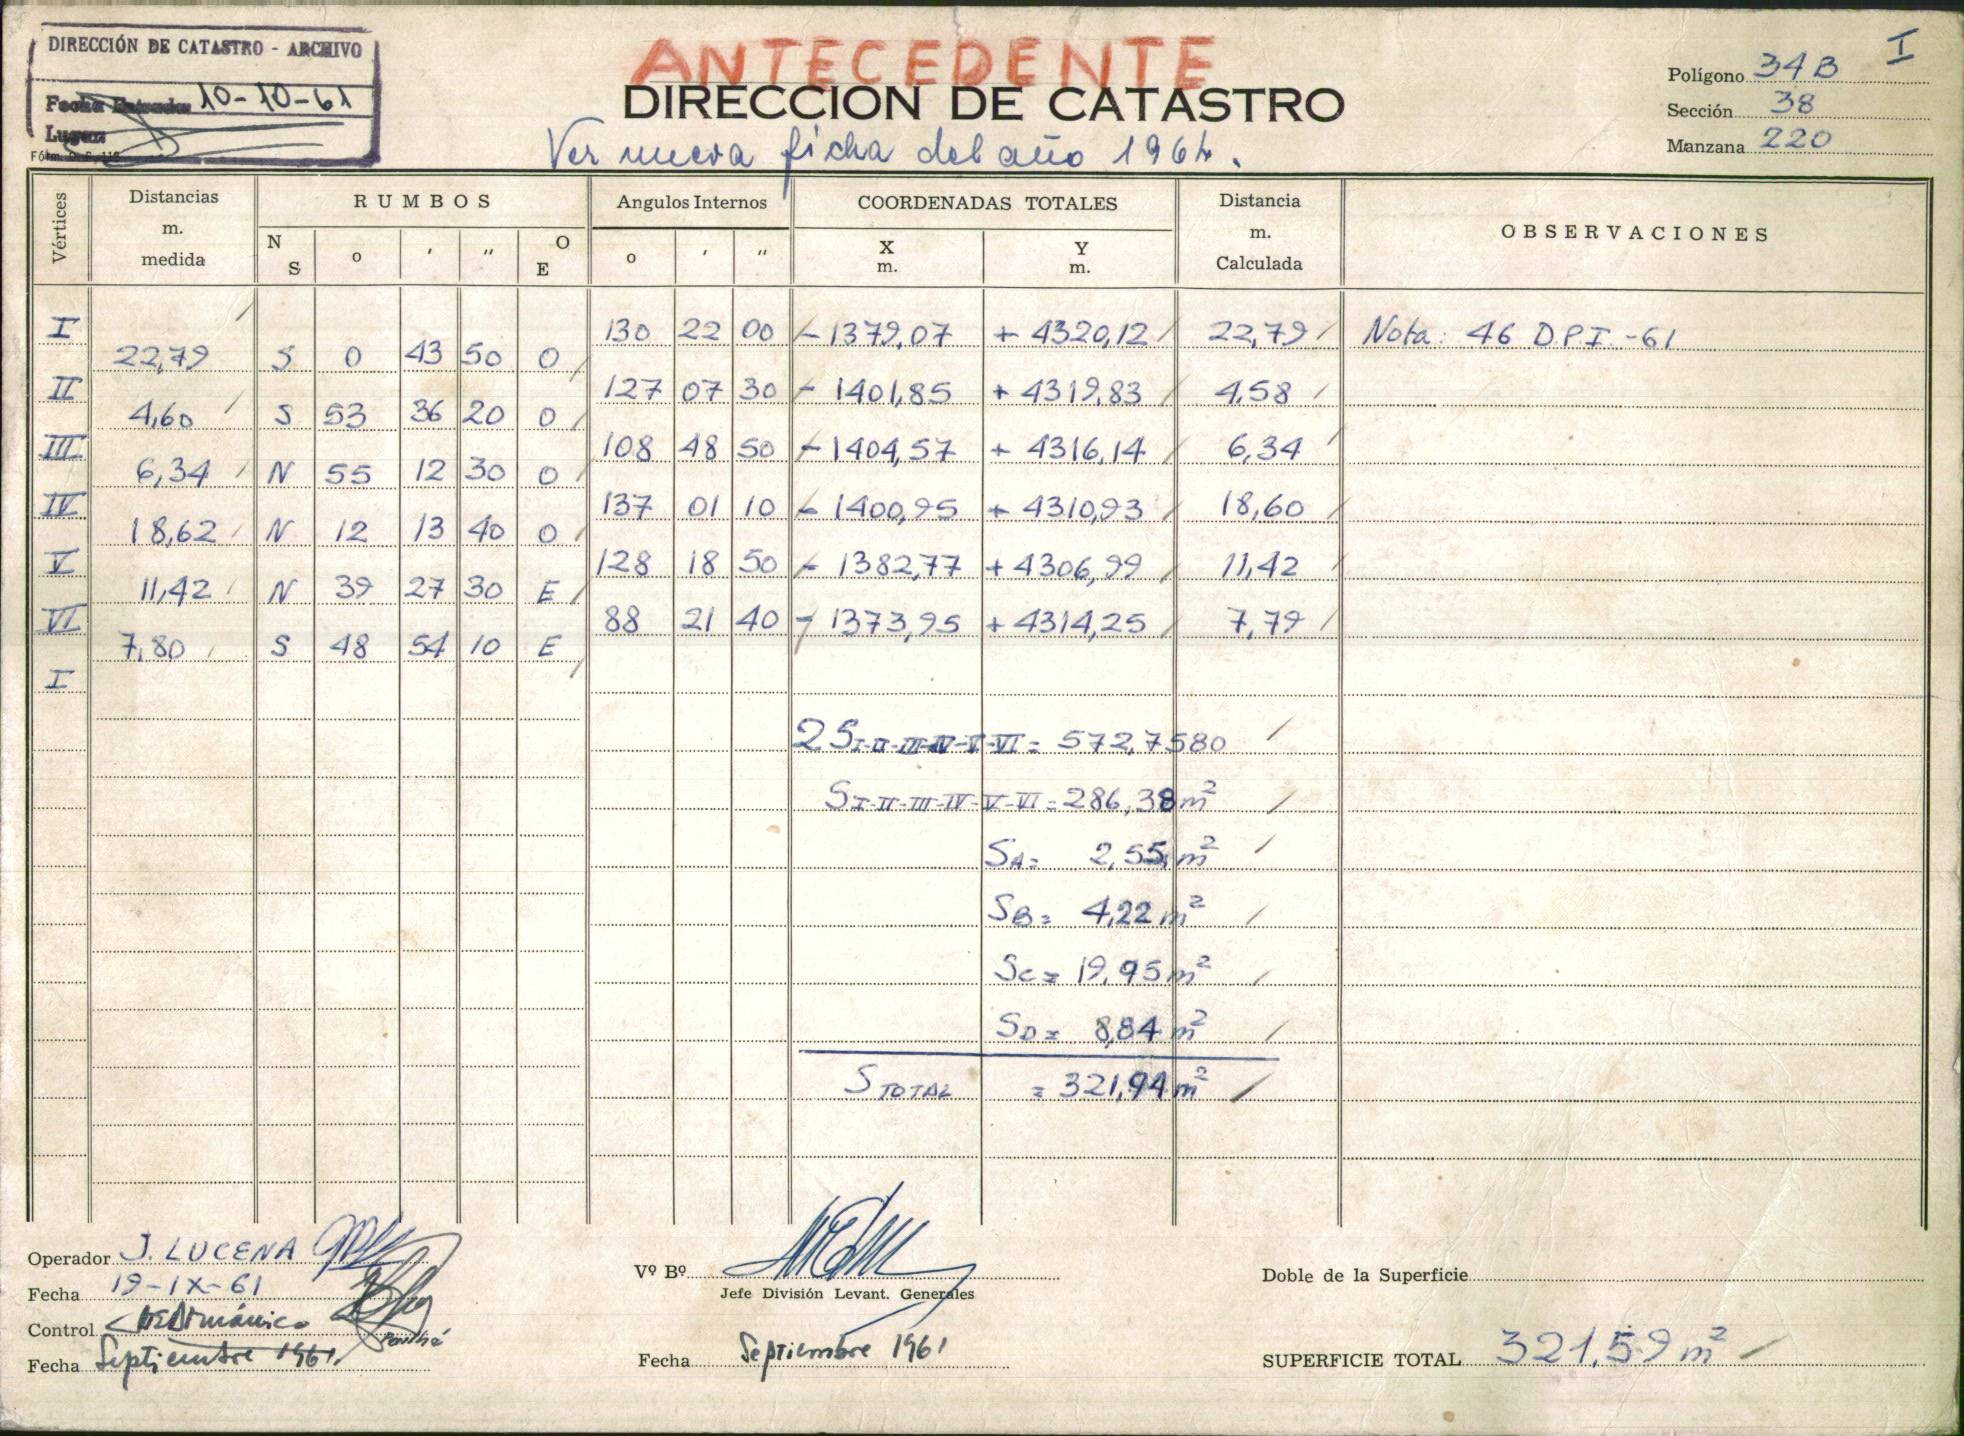 DIRECCIÓN DE CATASTRO - ARCHIVO
Fecha Entrada 10-10-61
Lugar
ANTECEDENTE
DIRECCION DE CATASTRO
Ver nueva ficha del año 1964.
I
Polígono 34 B
Sección 38
Manzana 220
Vértices Distancias m. medida RUMBOS Angulos Internos COORDENADAS TOTALES Distancia m. Calculada OBSERVACIONES
N S o ' " O E o ' " X m. Y m.
I 130 22 00 - 1379,07 + 4320,12 22,79 Nota: 46 D.P.I.-61
22,79 S 0 43 50 O
II 127 07 30 - 1401,85 + 4319,83 4,58
4,60 S 53 36 20 O
III 108 48 50 - 1404,57 + 4316,14 6,34
6,34 N 55 12 30 O
IV 137 01 10 - 1400,95 + 4310,93 18,60
18,62 N 12 13 40 O
V 128 18 50 - 1382,77 + 4306,99 11,42
11,42 N 39 27 30 E
VI 88 21 40 - 1373,95 + 4314,25 7,79
7,80 S 48 54 10 E
I
2 S I-II-III-IV-V-VI = 572,7580
S I-II-III-IV-V-VI = 286,38 m²
SA = 2,55 m²
SB = 4,22 m²
SC = 19,95 m²
SD = 8,84 m²
S TOTAL = 321,94 m²
Operador J. LUCENA
Fecha 19-IX-61
Control
Fecha Septiembre 1961.
Vº Bº
Jefe División Levant. Generales
Fecha Septiembre 1961
Doble de la Superficie
SUPERFICIE TOTAL 321,59 m²